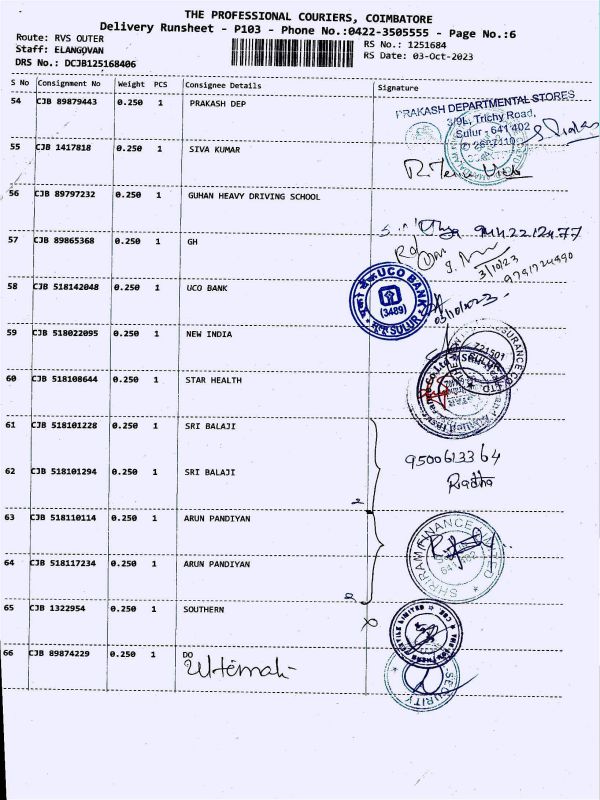 THE PROFESSIONAL COURIERS, COIMBATORE
Delivery Runsheet - P103 - Phone No.:0422-3505555 - Page No.:6
Route: RVS OUTER
RS No.: 1251684
Staff: ELANGOVAN
RS Date: 03-Oct-2023
DRS No.: DCJB125168406
S No Consignment No Weight PCS Consignee Details Signature
54 CJB 89879443 0.250 1 PRAKASH DEP
PRAKASH DEPARTMENTAL STORES
3/9L, Trichy Road,
Sulur - 641 402
55 CJB 1417818 0.250 1 SIVA KUMAR
56 CJB 89797232 0.250 1 GUHAN HEAVY DRIVING SCHOOL
57 CJB 89865368 0.250 1 GH
3/10/23
58 CJB 518142048 0.250 1 UCO BANK
UCO BANK
(3489)
SULUR
59 CJB 518022095 0.250 1 NEW INDIA
60 CJB 518108644 0.250 1 STAR HEALTH
61 CJB 518101228 0.250 1 SRI BALAJI
9500613364
62 CJB 518101294 0.250 1 SRI BALAJI
Radha
2
63 CJB 518110114 0.250 1 ARUN PANDIYAN
SHRIRAM FINANCE LIMITED
64 CJB 518117234 0.250 1 ARUN PANDIYAN
2
65 CJB 1322954 0.250 1 SOUTHERN
66 CJB 89874229 0.250 1 DO
SECURITY